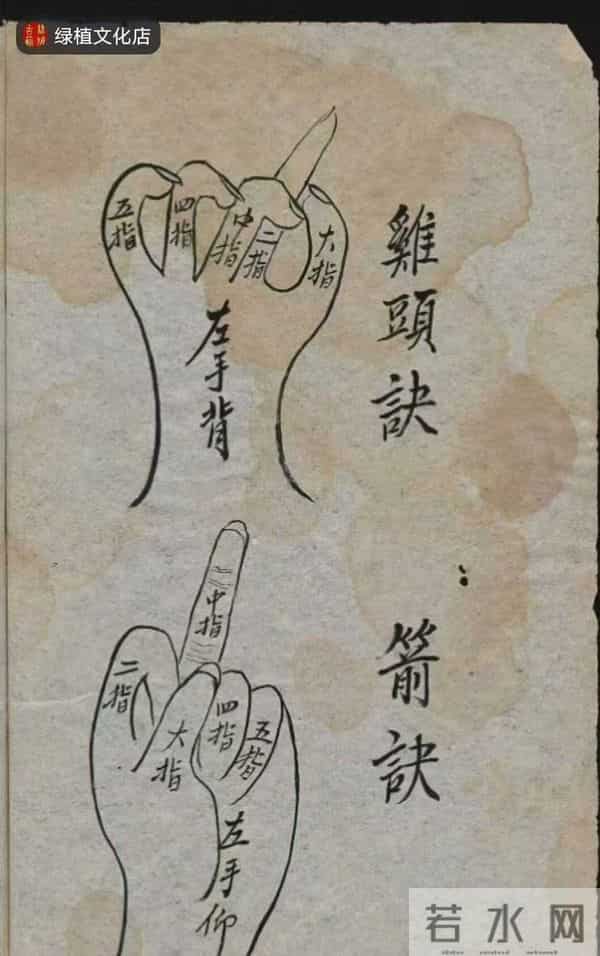 绿植文化店
雞頭訣
五指
四指
中指
二指
大指
左手背
箭訣
中指
二指
大指
四指
五指
左手仰
若水网